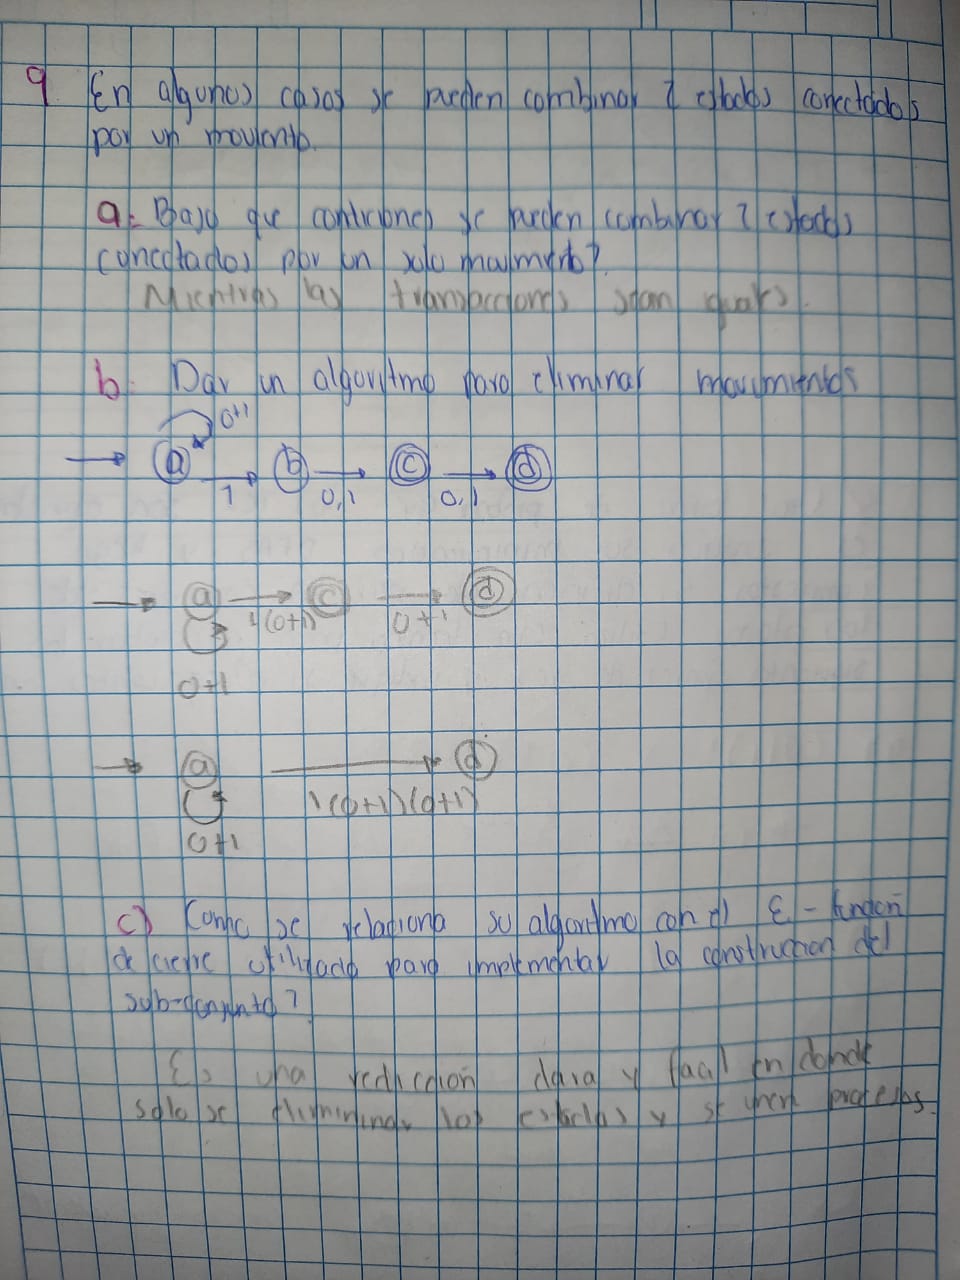 9 En algunos casos se pueden combinar 2 estados conectados
por un moviento.
a: Bajo que contriciones se pueden combinar 2 estados
conectados por un solo movimento?
Mientras las transacciones sean iguales.
b: Dar un algoritmo para eliminar movimientos
0+1
→ a → b → c → d
1 0,1 0,1
→ a → c → d
1(0+1) 0+1
0+1
→ a → d
1(0+1)(0+1)
0+1
c) Como se relaciona su algoritmo con el ε - función
de cierre utilizado para implementar la construccion del
sub-conjunto?
Es una rediccion clara y facil en donde
solo se eliminindo los estados y se unen procesos.